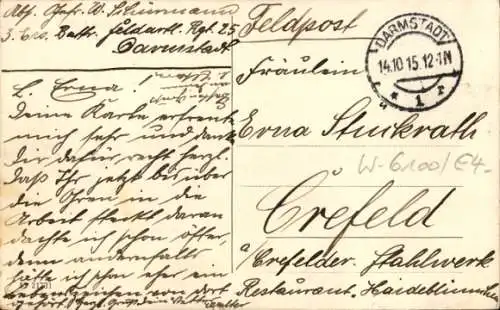 Abs. Gefr. W. Schürmann
3. Ers. Battr. Feldartl. Rgt. 25
Darmstadt
Feldpost
DARMSTADT
14.10.15.12-1N
* 1 r
L. Erna!
Deine Karte erfreute
mich sehr und danke
Dir dafür recht herzl.
Daß Ihr jetzt bis über
die Ohren in die
Arbeit steckt daran
dachte ich schon öfter,
denn andernfalls
hätte ich schon eher ein
Lebenszeichen von dort
gehört. Herzl. Gruß Dein Vetter
Fräulein
Erna Stuckrath
W-6100/E4-
Crefeld
a/Crefelder Stahlwerk
Restaurant Haideblümchen